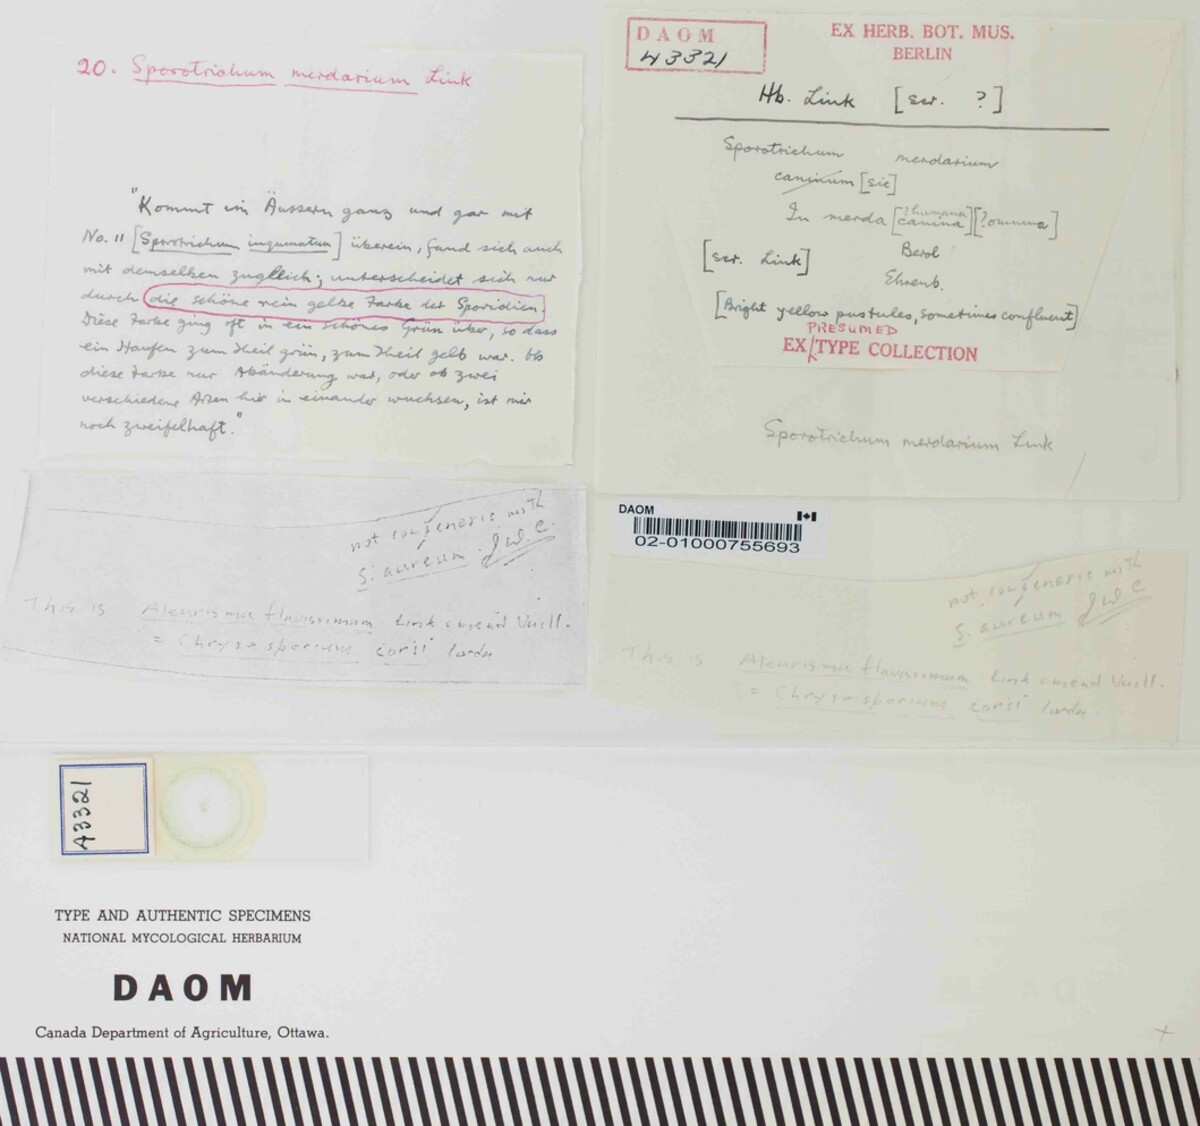 20. Sporotrichum merdarium Link
"Kommt im Äussern ganz und gar mit
No. 11 [Sporotrichum inquinatum] überein, fand sich auch
mit demselben zugleich; unterscheidet sich nur
durch die schöne rein gelbe Farbe der Sporidien.
Diese Farbe ging oft in ein schönes Grün über, so dass
ein Haufen zum Theil grün, zum Theil gelb war. Ob
diese Farbe nur Abänderung war, oder ob zwei
verschiedene Arten hier in einander wuchsen, ist mir
noch zweifelhaft."
DAOM
43321
EX HERB. BOT. MUS.
BERLIN
Hb. Link [scr. ?]
Sporotrichum merdarium
caninum [sic]
In merda [?humana canina] [?omnina]
[scr. Link]
Berol
Ehrenb.
[Bright yellow pustules, sometimes confluent]
PRESUMED
EX TYPE COLLECTION
Sporotrichum merdarium Link
not congeneric with
S. aureum. J.W.C.
This is Aleurisma flavissimum Link emend Vuill.
= Chrysosporium corii Corda
DAOM
02-01000755693
not congeneric with
S. aureum J.W.C
This is Aleurisma flavissimum Link emend Vuill.
= Chrysosporium corii Corda
43321
TYPE AND AUTHENTIC SPECIMENS
NATIONAL MYCOLOGICAL HERBARIUM
DAOM
Canada Department of Agriculture, Ottawa.